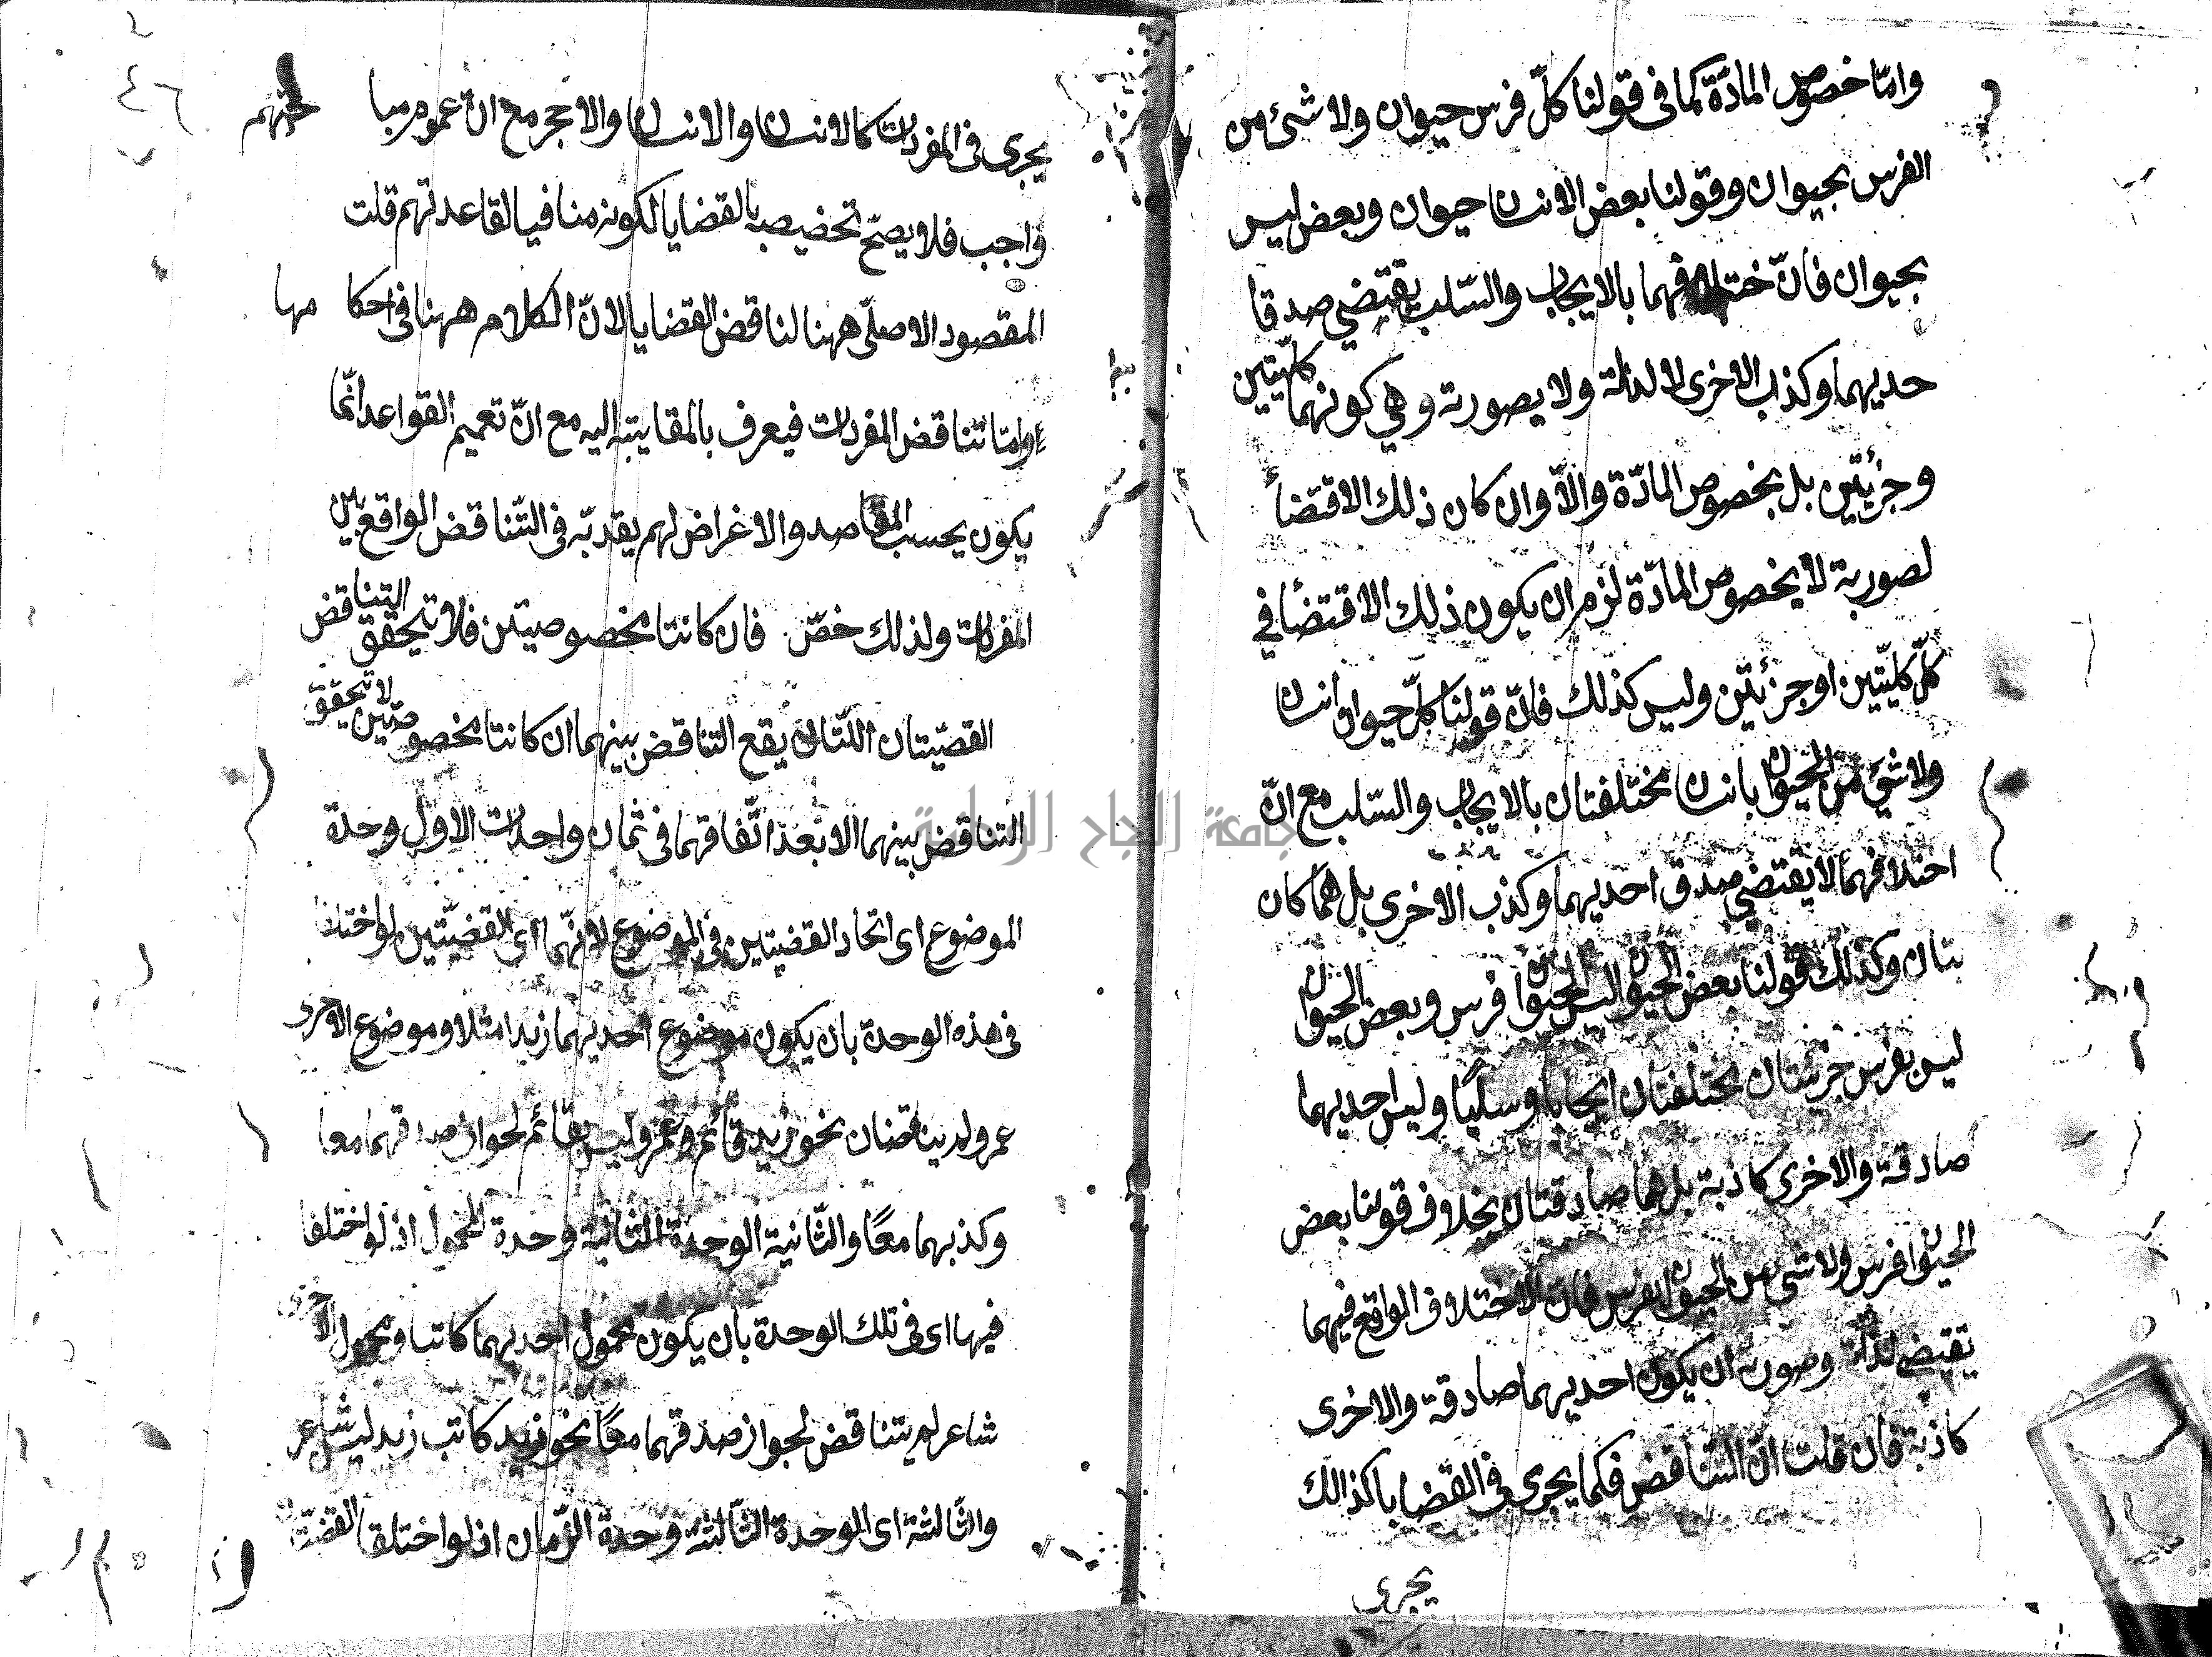 وامّا خصوص المادّة كما فى قولنا كلّ فرس حيوان ولا شئ من
الفرس بحيوان وقولنا بعض الانسان حيوان وبعض ليس
بحيوان فانّ ختلا فهما بالايجاب والسّلب يقتضي صدقا
حديهما وكذب الاخرى لا لذاته ولا بصورته وهي كونهما كليّتين
وجزئيّتين بل بخصوص المادّة والاّ وان كان ذلك الاقتضأ
لصورية لا بخصوص المادّة لزم ان يكون ذلك الاقتضأ في
كلّ كليّتين او جزئيّتين وليس كذلك فانّ قولنا كلّ حيوان انسان
ولا شئ من الحيوان بانسان مختلفتان بالايجاب والسّلب مع انّ
اختلافهما لا يقتضي صدق احديهما وكذب الاخرى بل هما كان
بتان وكذلك قولنا بعض الحيوان فرس وبعض الحيوان
ليس بفرس جزئيتان مختلفتان ايجابا وسلبًا وليس احديهما
صادقة والاخرى كاذبة بل هما صادقتان بخلاف قولنا بعض
الحيوان فرس ولا شئ من الحيوان بفرس فانّ الاختلاف الواقع فيهما
يقتضي لذاته وصورته ان يكون احديهما صادقة والاخرى
كاذبة فان قلت انّ التّناقض فكما يجرى فى القضايا كذالك
يجرى
٤٦
يجرى فى المفردات كالانسان والاانسان والاحجر مع انّ عموم مبا حثهم
واجب فلا يصحّ تخصيصه بالقضايا لكونه منافيا لقاعدتهم قلت
المقصود الاصلى ههنا لناقض القضايا لانّ الكلام ههنا فى احكا مها
وامّا تناقض المفردات فيعرف بالمقا اليه مع انّ تعميم القواعد انّما
يكون بحسب المقاصد والاغراض لهم فى التّناقض الواقع بين
المفردات ولذلك خصّ فان كانتا مخصوصيتن فلا تحقق التناقض
القضيّتان اللّتان يقع التناقض بينهما ان كانتا مخصوصيّتين لا تحقق
التناقض بينهما الا بعد اتّفاقهما فى ثمان واحدات الاول وحدة
الموضوع اى اتحاد القضيتين فى الموضوع لانّهما اى القضيّتين لو اختلفا
فى هذه الوحدة بان يكون موضوع احديهما زيدا مثلا وموضوع الاخرى
عمرو لم يتناقضان نحو زيد قائم وعمرو ليس بقائم لجواز صدقهما معا
وكذبهما معًا والثّانية الوحدة الثّانية وحدة المحمول اذ لو اختلفا
فيها اى فى تلك الوحدة بان يكون محمول احديهما كاتبا ومحمول الاخرى
شاعر لم يتناقض لجواز صدقهما معًا نحو زيد كاتب زيد ليس بشاعر
والثّالثة اى الوحدة الثّالثة وحدة الزّمان اذ لو اختلفا القضيّتا
جامعة النجاح الوطنية